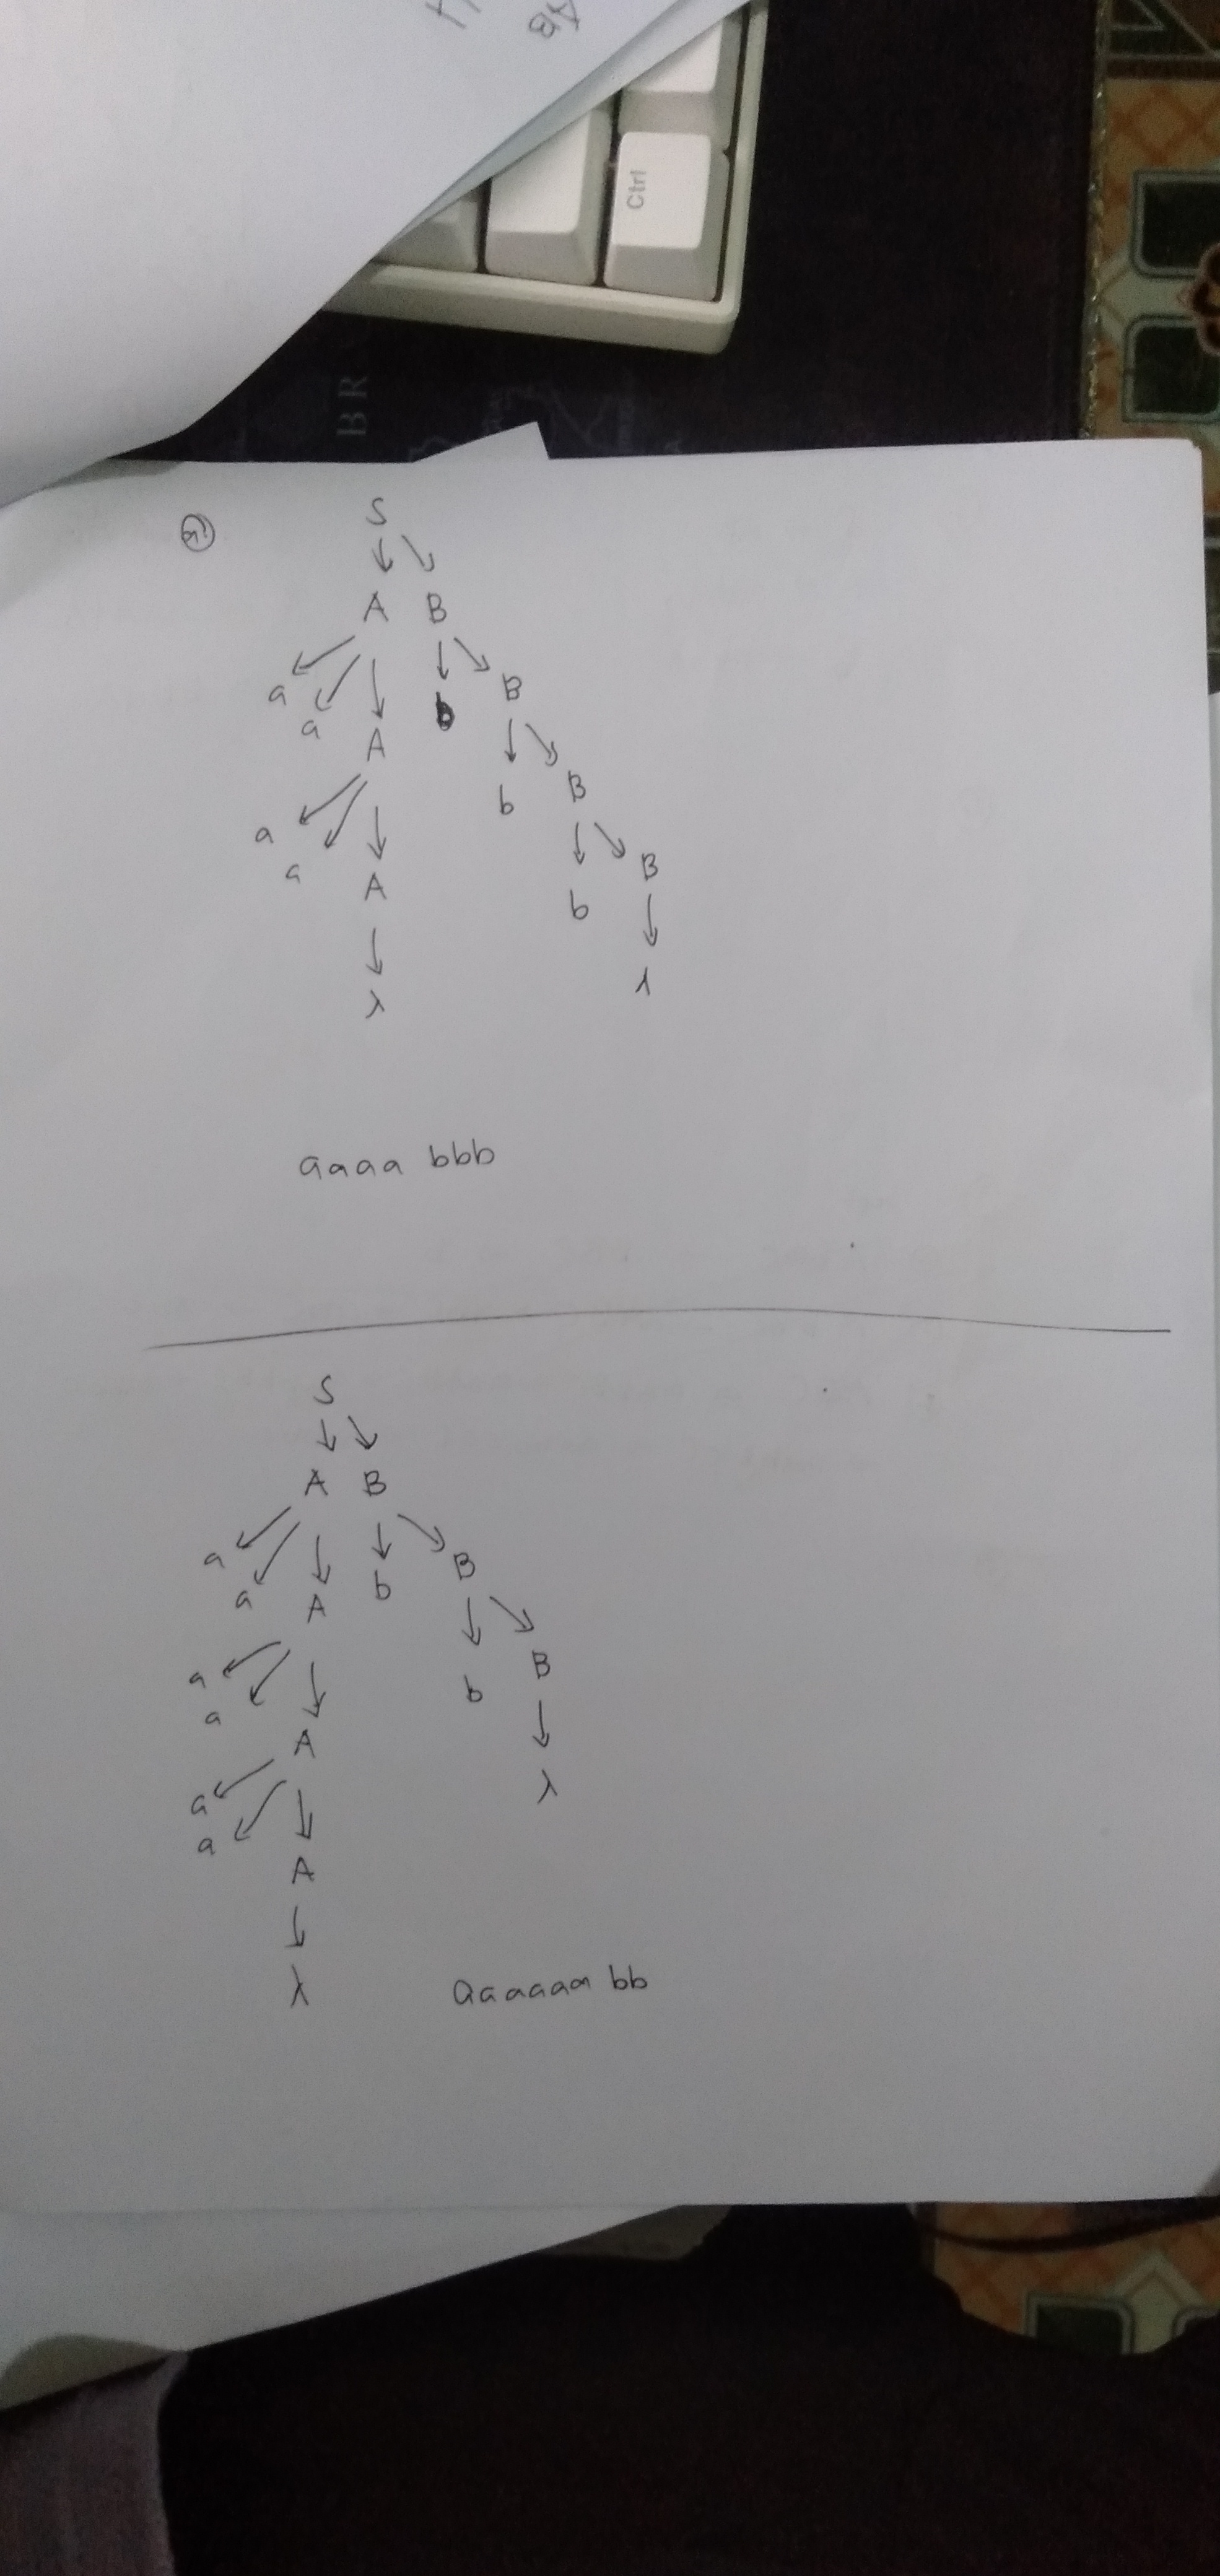 AB
Ctrl
BR
S
A B
a a A b B
a a A b B
λ b B
λ
aaaa bbb
S
A B
a a A b B
a a A b B
a a A λ
λ
aaaaaa bb